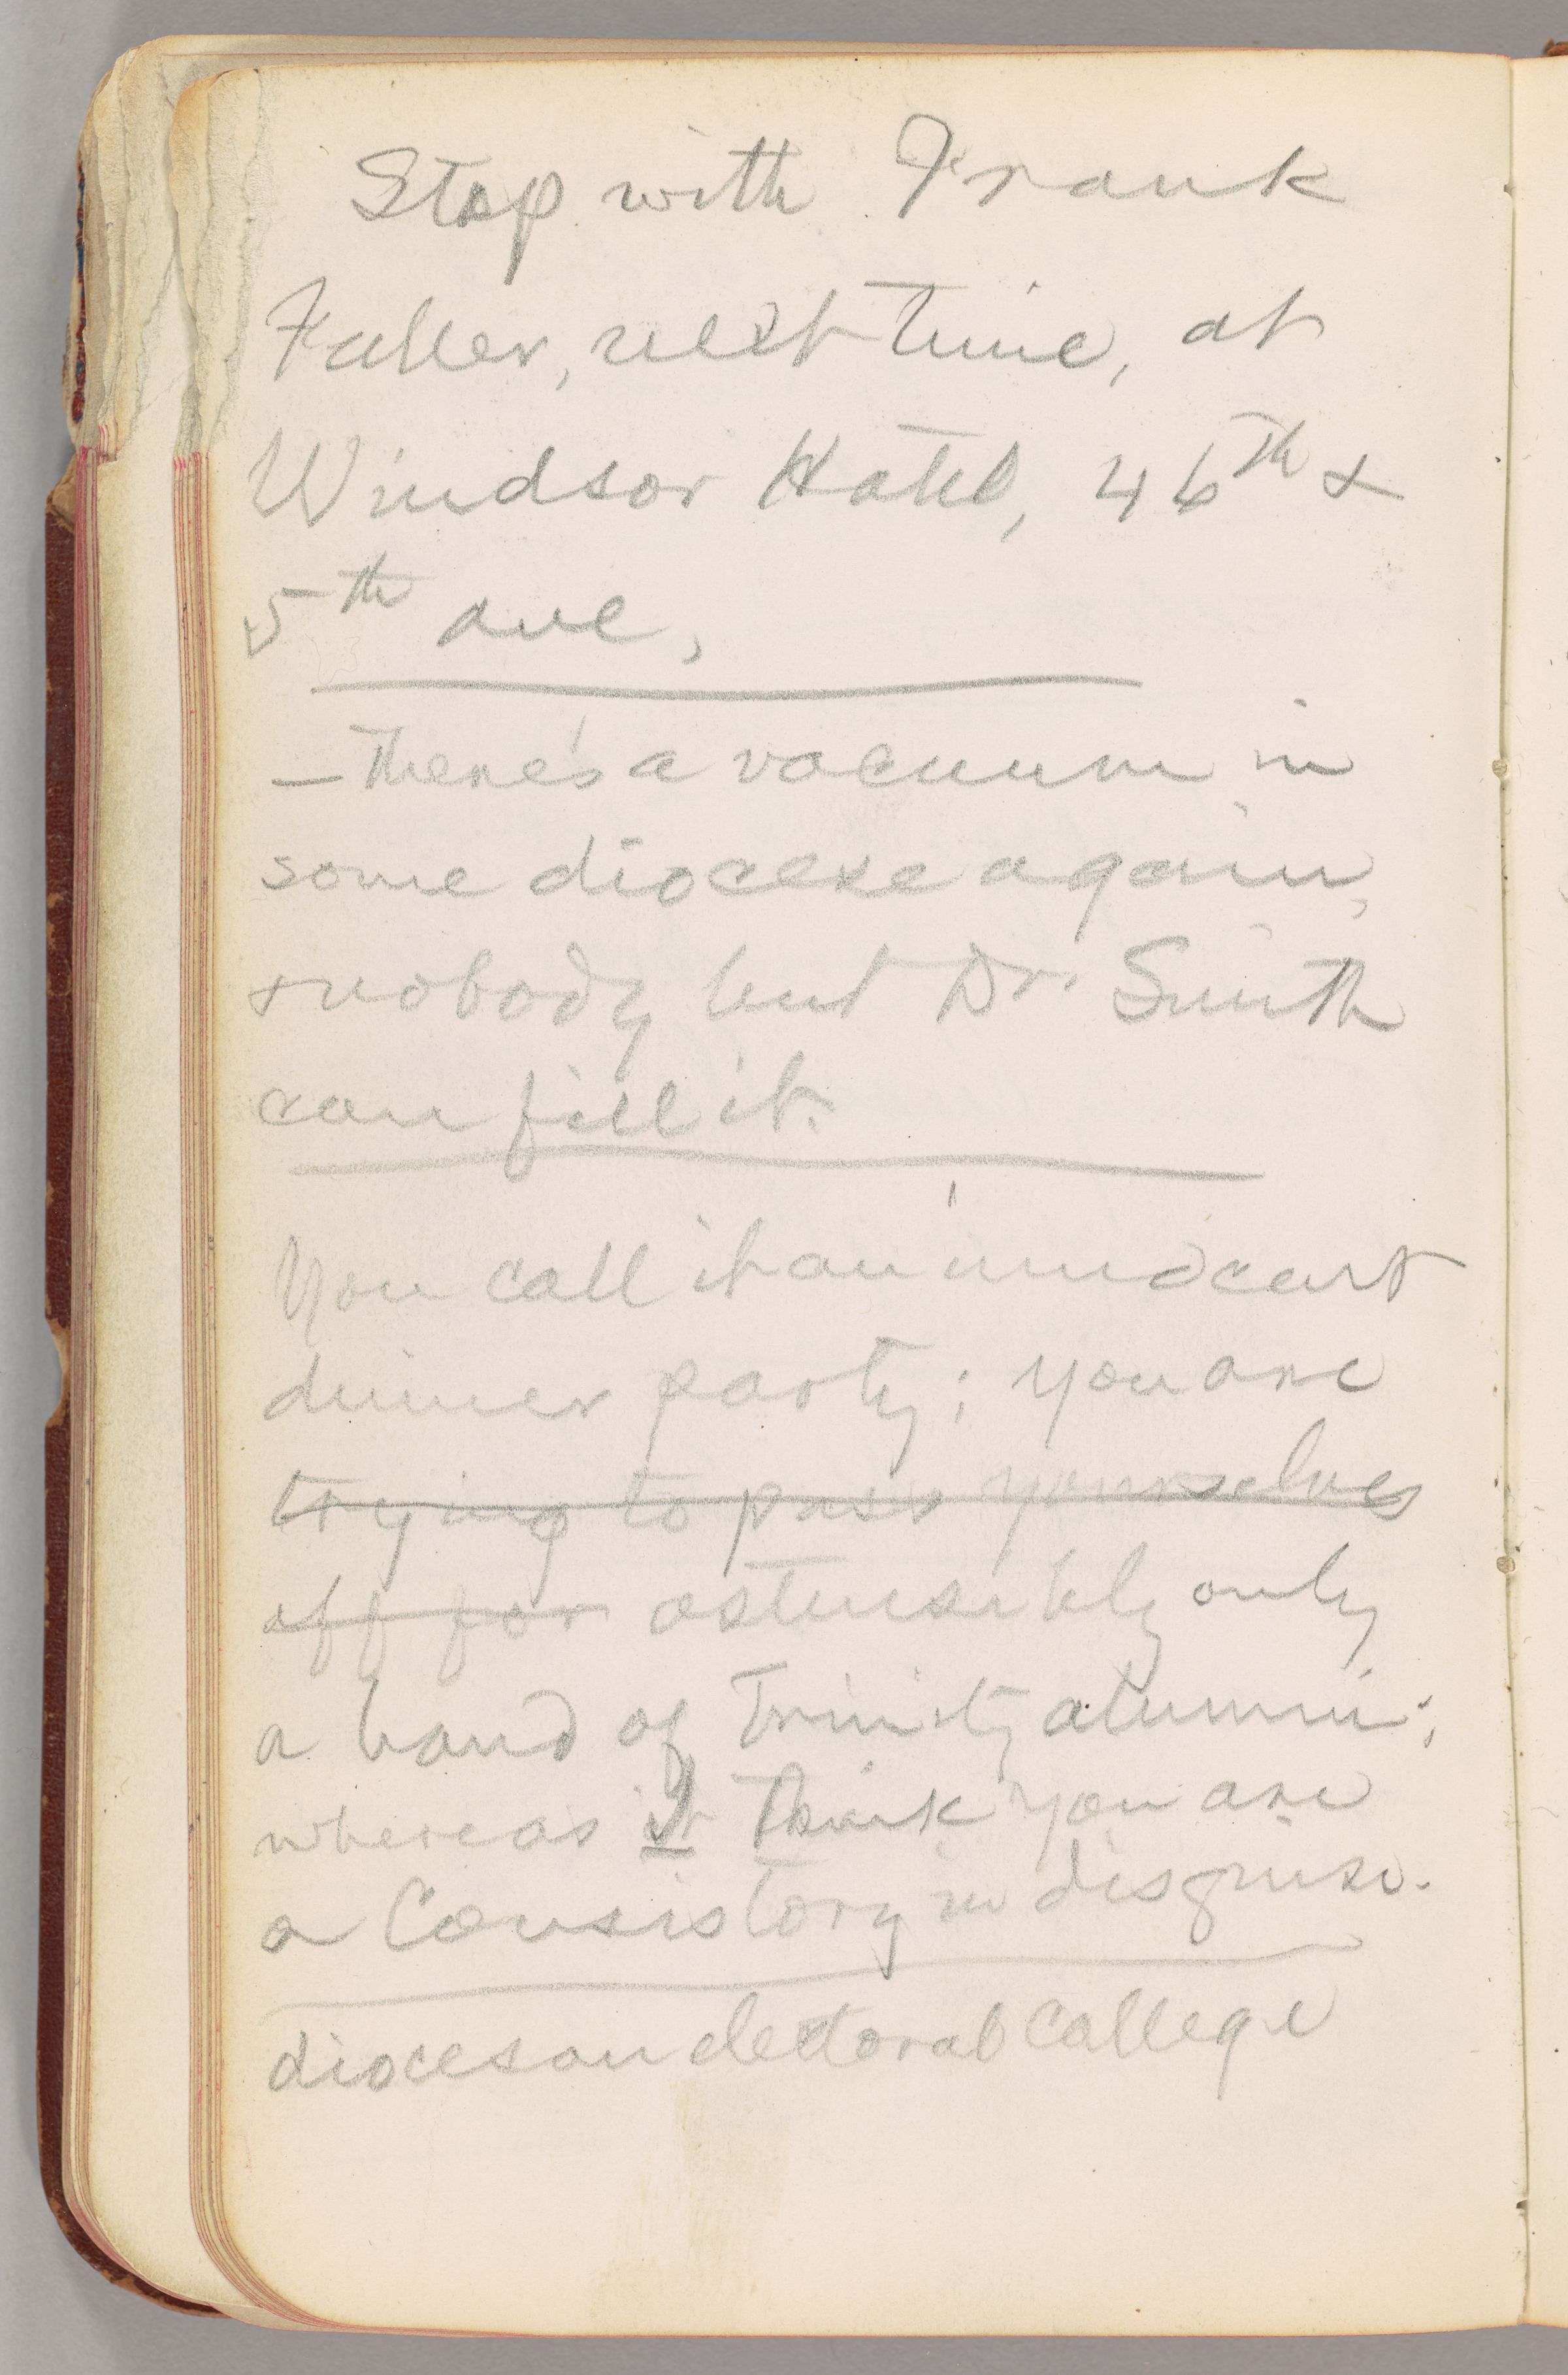 Stop with Frank
Fuller, next time, at
Windsor Hotel, 46th &
5th ave,
— There's a vacuum in
some diocese again,
& nobody but Dr. Smith
can fill it.
You call it an innocent
dinner party; you are
trying to pass yourselves
off for ostensibly only
a band of Trinity alumni;
whereas I think you are
a Consistory in disguise.
diocesan electoral college